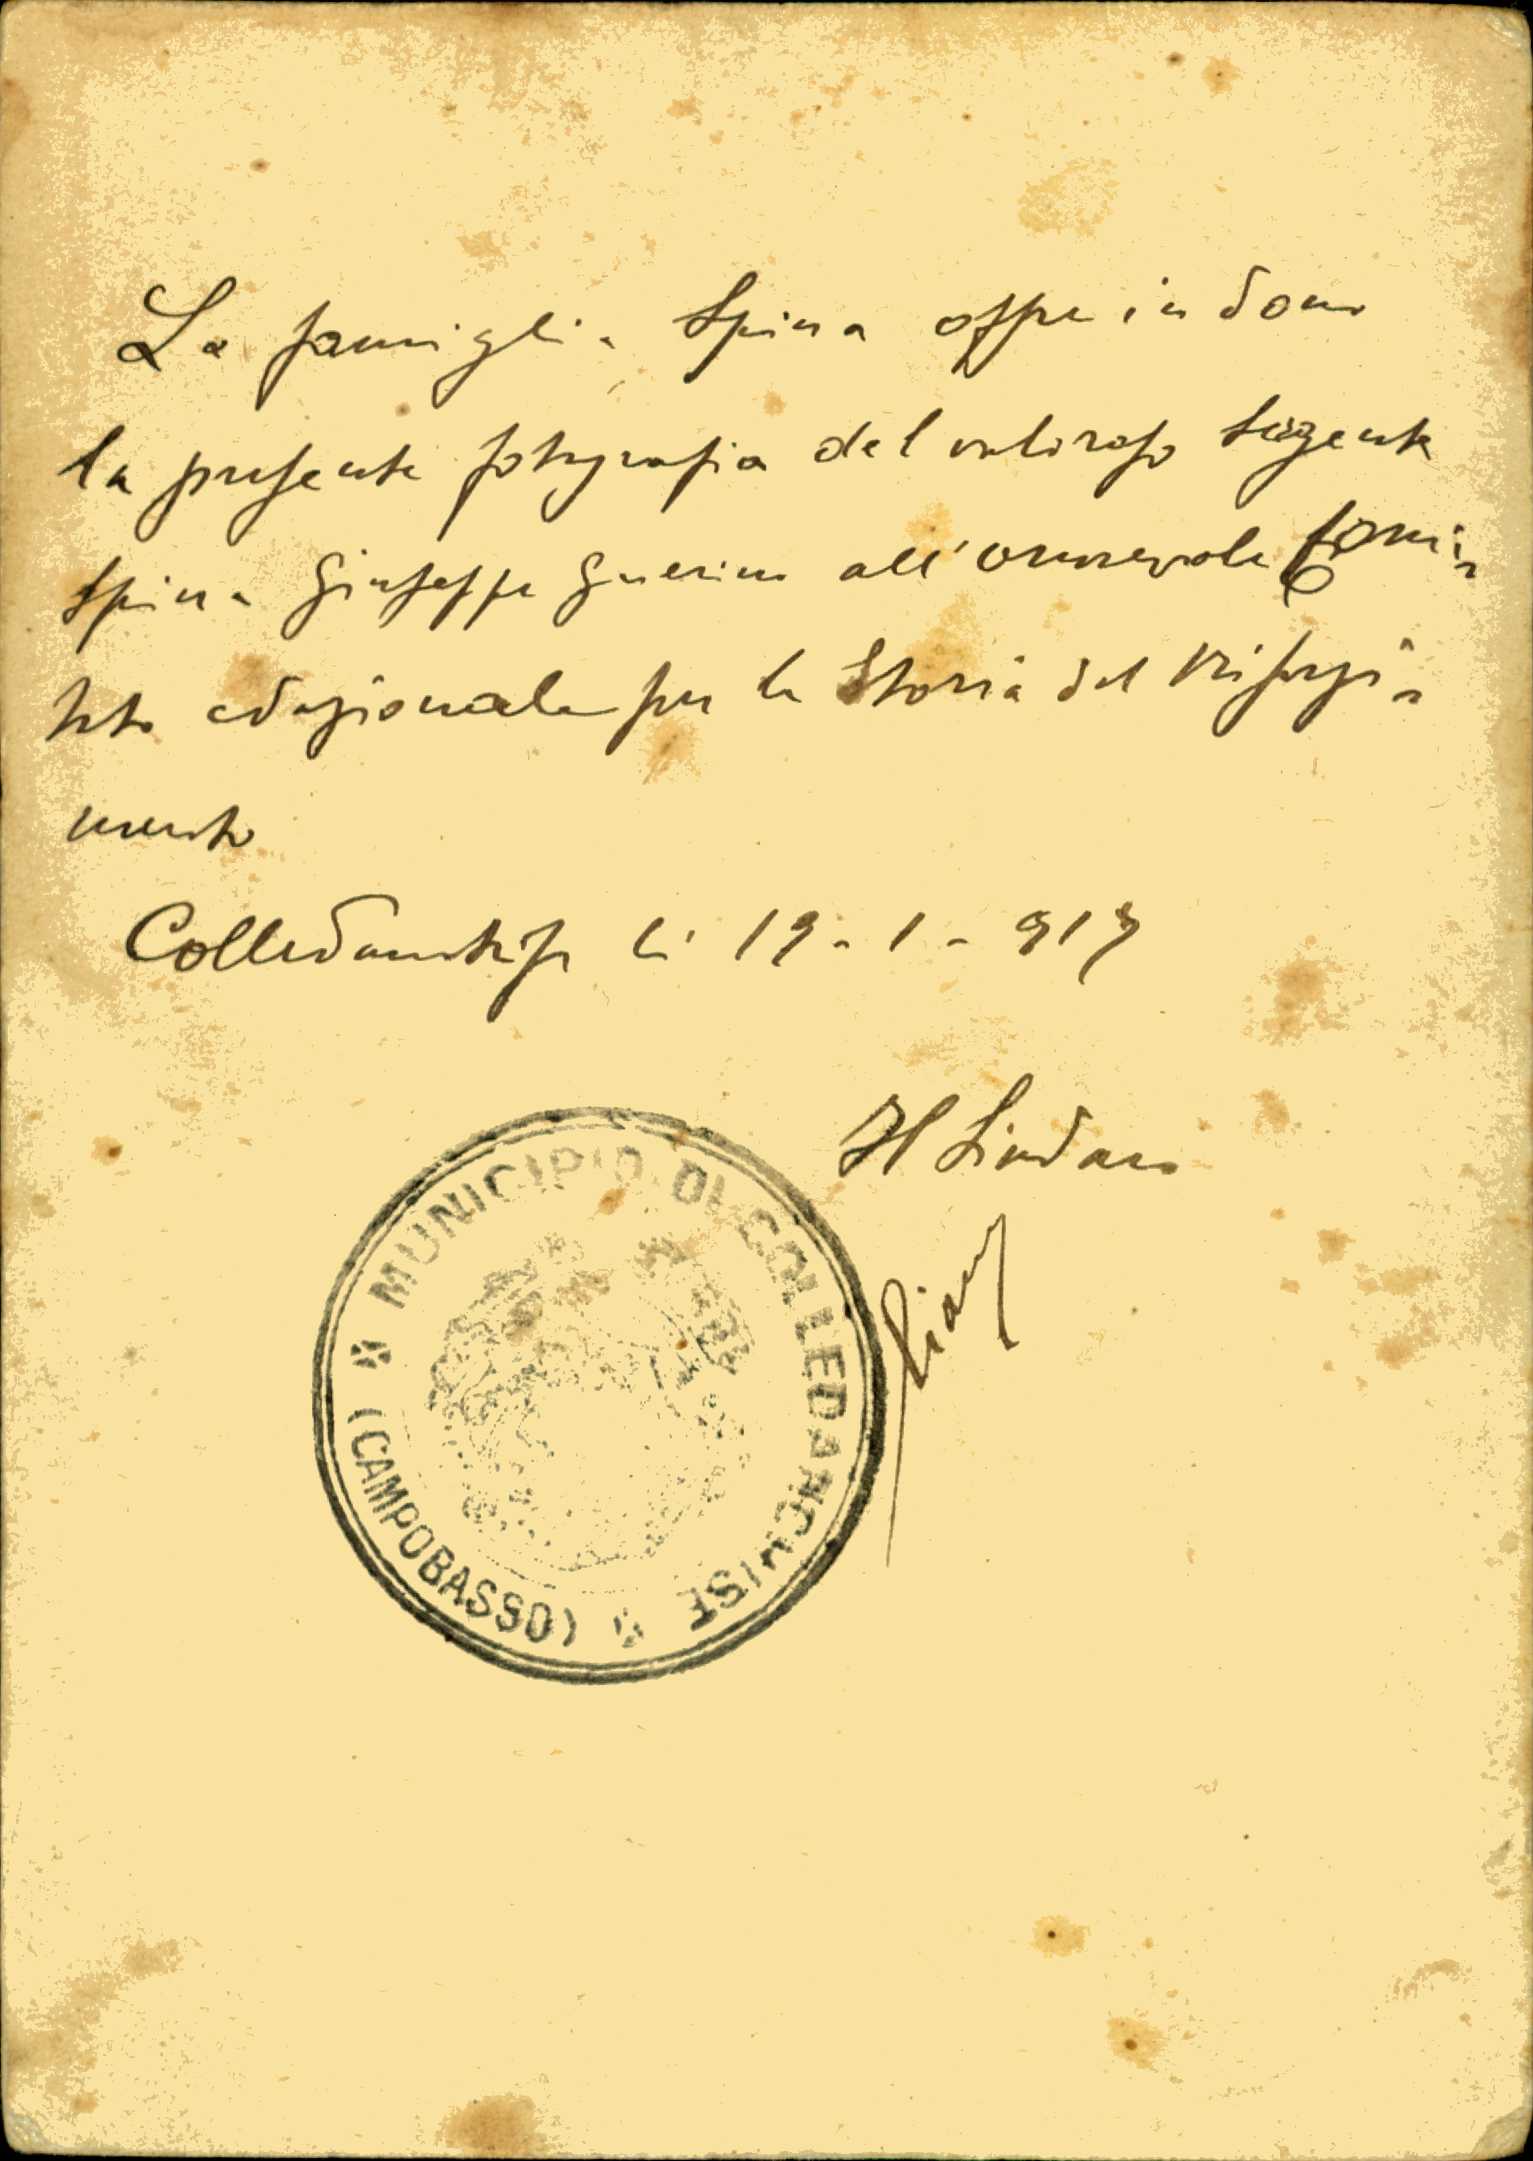 La famiglia Spina offre in dono
la presente fotografia del valoroso sergente
Spina Giuseppe Guerino all'onorevole Comi-
tato nazionale per la Storia del Risorgi-
mento
Colledanchise li 19-1-917
Il Sindaco
MUNICIPIO DI COLLEDANCHISE
(CAMPOBASSO)